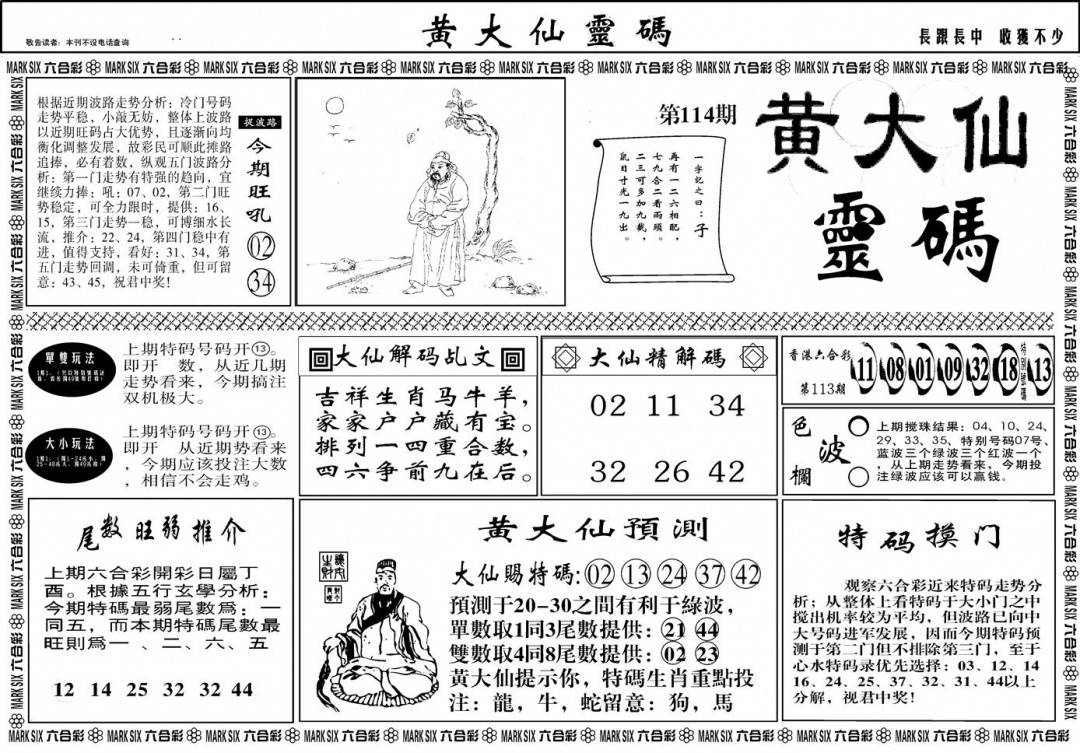 敬告读者：本刊不设电话查询
黄大仙靈碼
長跟長中 收獲不少
MARK SIX 六合彩
根据近期波路走势分析：冷门号码
走势平稳，小敲无妨，整体上波路
以近期旺码占大优势，且逐渐向均
衡化调整发展，故彩民可顺此摊路
追捧，必有着数，纵观五门波路分
析：第一门走势有特强的趋向，宜
继续力捧：吼：07、02，第二门旺
势稳定，可全力限时，提供：16、
15，第三门走势一稳，可博细水长
流，推介：22、24，第四门稳中有
进，值得支持，看好：31、34，第
五门走势回调，未可倚重，但可留
意：43、45，祝君中奖！
捉波路
今期旺吼
02
34
第114期
一字記之曰：子
再有一二六相配，
七九合二看兩頭。
二三可多加九截，
鼠目寸光一九出。
黄大仙
靈碼
單雙玩法
上期特码号码开⑬。
即开 数，从近几期
走势看来，今期搞注
双机极大。
大小玩法
上期特码号码开⑬。
即开 从近期势看来
，今期应该投注大数
，相信不会走鸡。
大仙解码乩文
吉祥生肖马牛羊，
家家户户藏有宝。
排列一四重合数，
四六争前九在后。
大仙精解碼
02 11 34
32 26 42
香港六合彩
第113期
11 08 01 09 32 18
特别號碼
13
色波欄
上期搅珠结果：04、10、24、
29、33、35、特别号码07号、
蓝波三个绿波三个红波一个
，从上期走势看来，今期投
注绿波应该可以赢钱。
尾数旺弱推介
上期六合彩開彩日屬丁
酉。根據五行玄學分析：
今期特碼最弱尾數爲：一
同五，而本期特碼尾數最
旺則爲一 、二、六、五
12 14 25 32 32 44
黄大仙預測
大仙賜特碼：02 13 24 37 42
預測于20-30之間有利于綠波，
單數取1同3尾數提供：21 44
雙數取4同8尾數提供：02 23
黄大仙提示你，特碼生肖重點投
注：龍，牛，蛇留意：狗，馬
特码摸门
观察六合彩近来特码走势分
析；从整体上看特码于大小门之中
搅出机率较为平均，但波路已向中
大号码进军发展，因而今期特码预
测于第二门但不排除第三门，至于
心水特码录优先选择：03、12、14
16、24、25、37、32、31、44以上
分解，视君中奖！